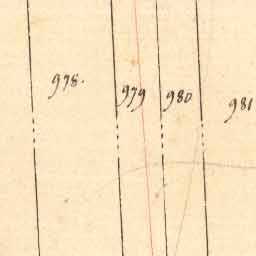 978.
979
980
981